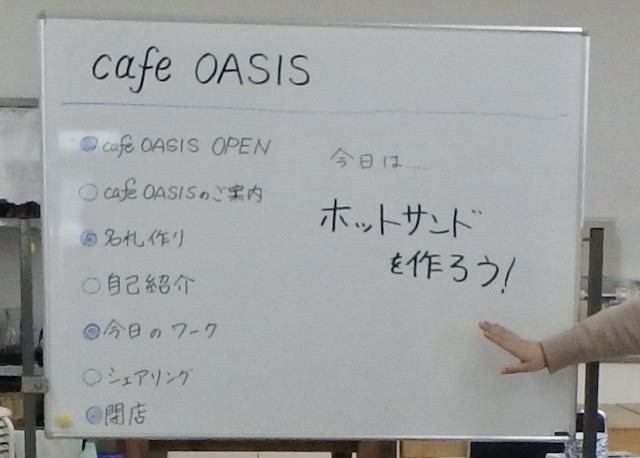 cafe OASIS
cafe OASIS OPEN
cafe OASISのご案内
名札作り
自己紹介
今日のワーク
シェアリング
閉店
今日は……
ホットサンド
を作ろう!